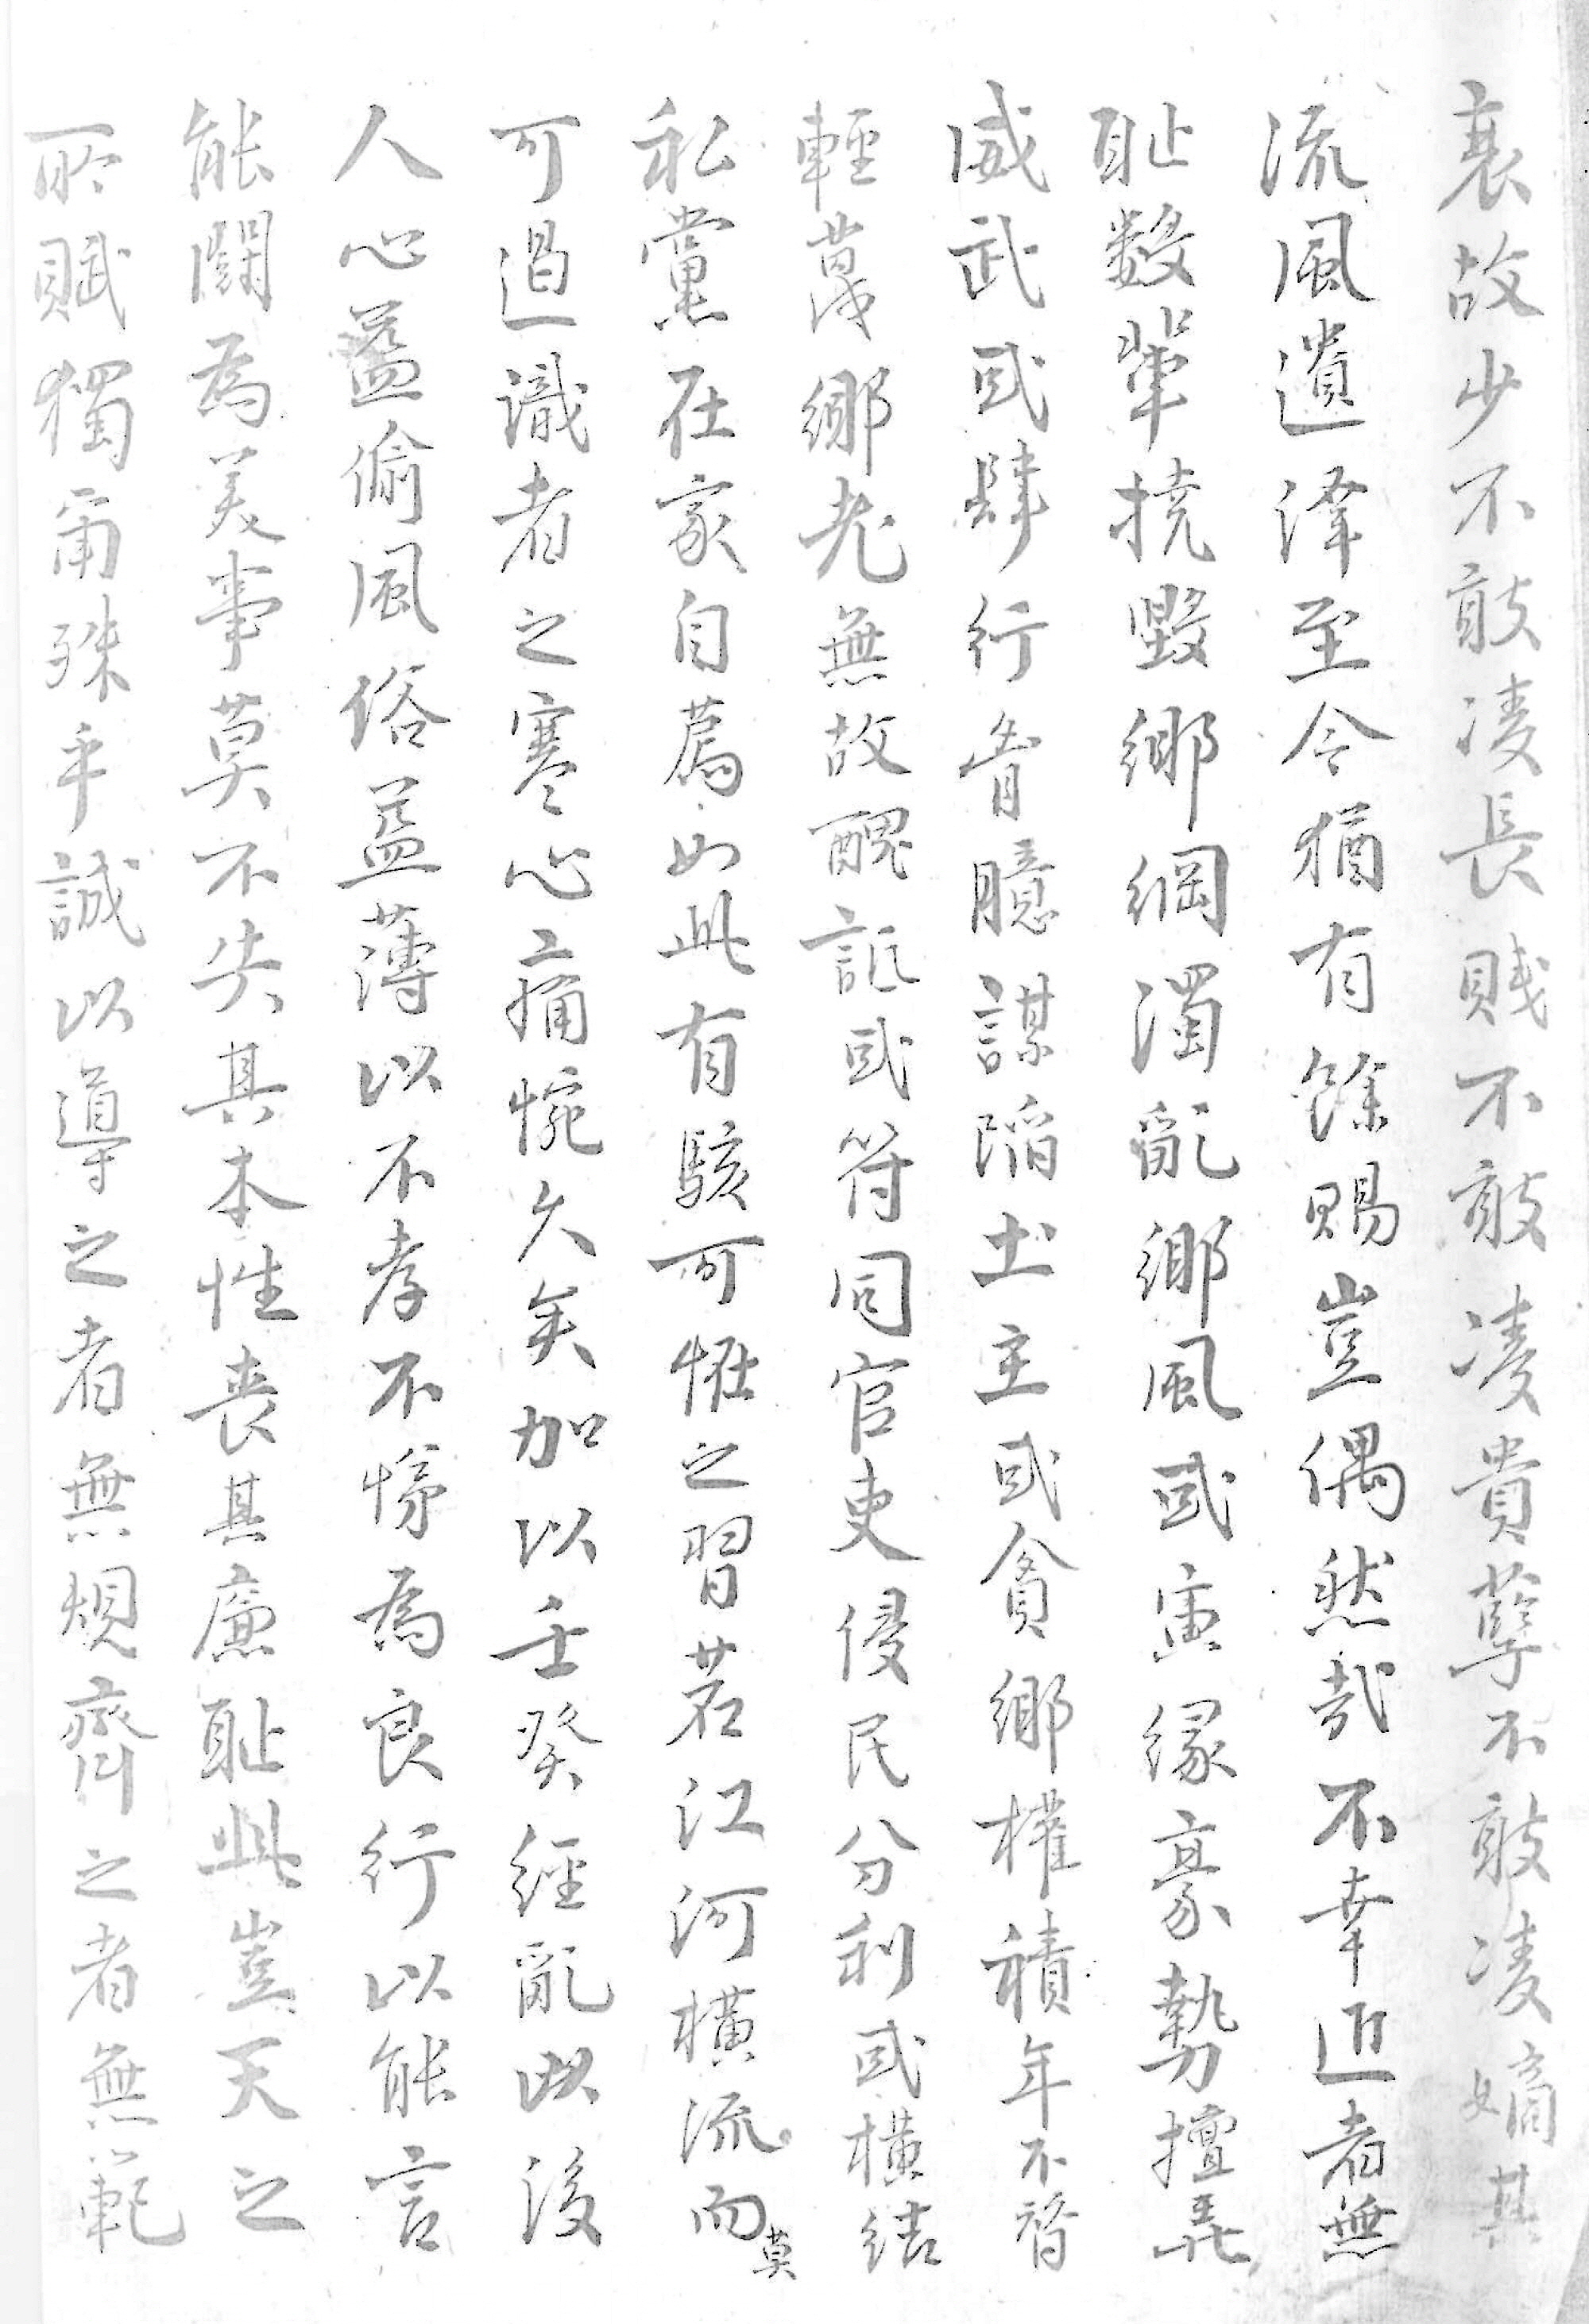 裏故少不敢凌長賤不敢凌貴孽不敢凌嫡其
流風遺澤至今猶有餘賜豈偶然哉不幸近者無
耻數輩撓毀鄉綱濁亂鄉風或寅緣豪勢擅弄
威武或肆行胷臆謀陷土主或貪鄉權積年不替
輕蔑鄉老無故醜詎或符同官吏侵民分利或橫結
私黨在家自薦如此有駭可恠之習若江河橫流而莫
可遏識者之寒心痛惋久矣加以壬癸經亂以後
人心益偷風俗益薄以不孝不悌為良行以能言
能鬪為美事莫不失其本性喪其廉耻此豈天之
所賦獨爾殊乎誠以導之者無規齊之者無範